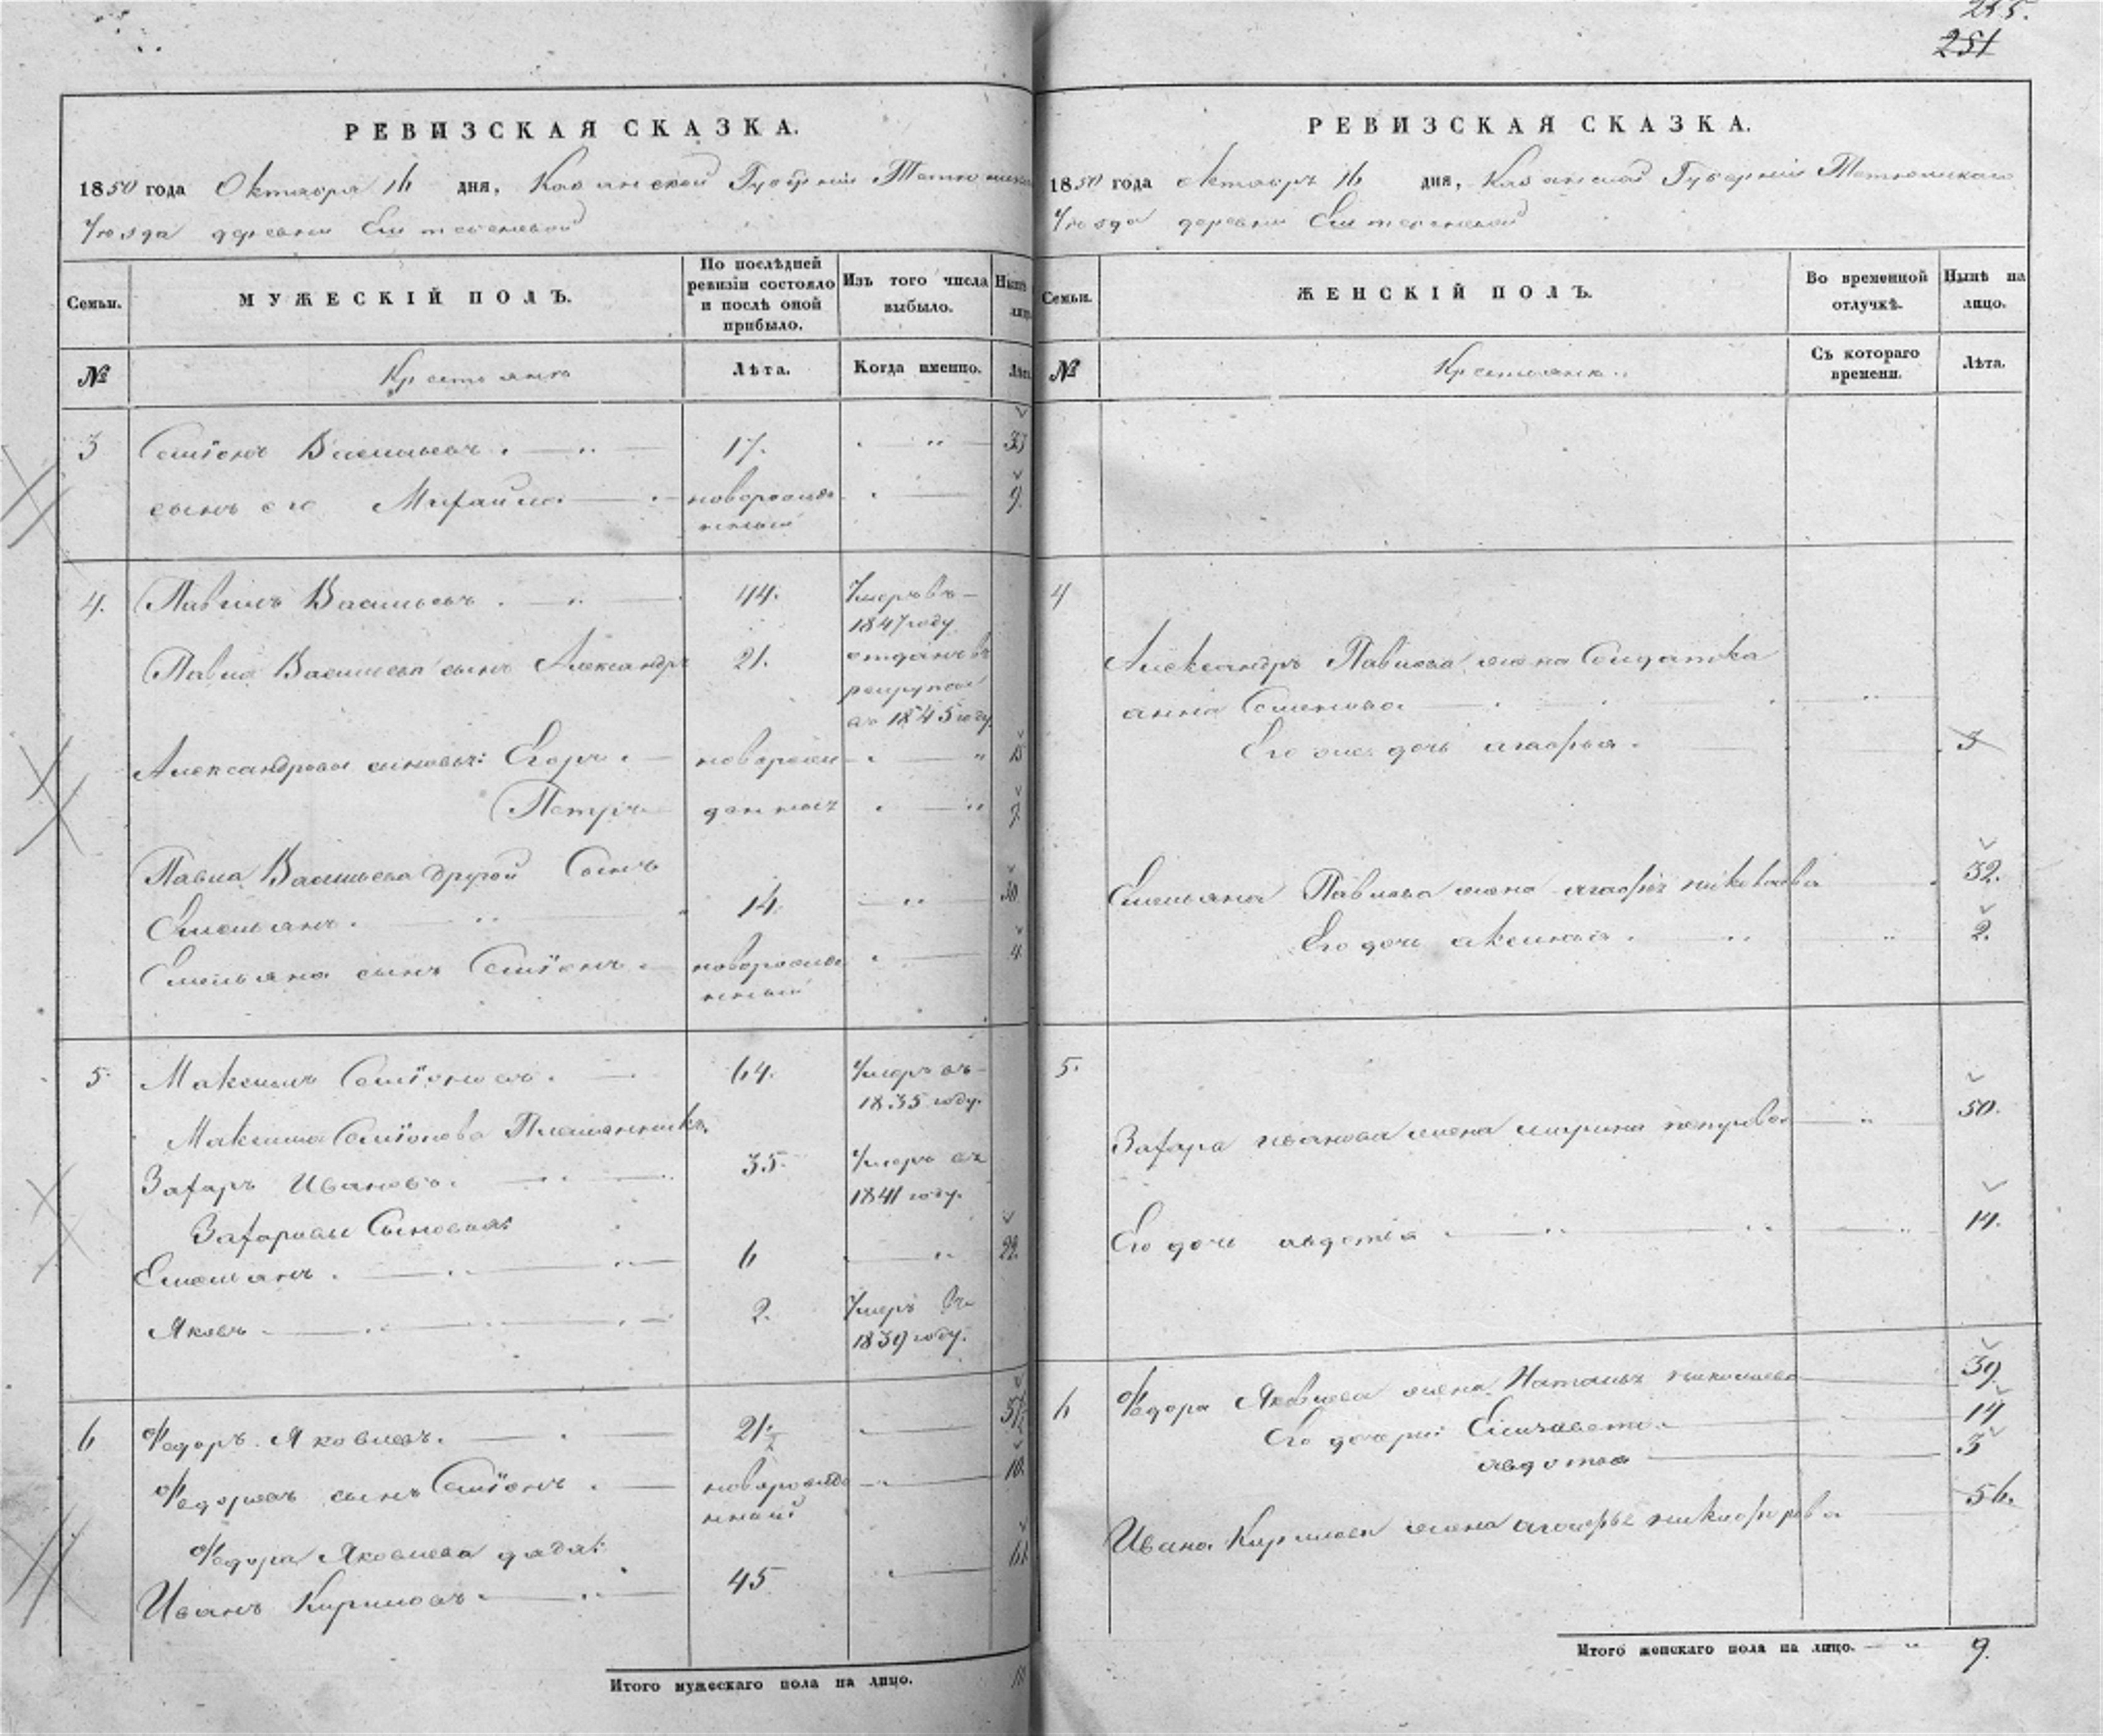 255.
251
РЕВИЗСКАЯ СКАЗКА.
1850 года Октября 16 дня, Казанской Губернии
Уезда деревни
Семьи.
МУЖЕСКІЙ ПОЛЪ.
По послѣдней ревизіи состояло и послѣ оной прибыло.
Изъ того числа выбыло.
Нынѣ
№
Крестьяне
Лѣта.
Когда именно.
Лѣта
3 Семіонъ Васильевъ. 17. 37
сынъ его Михайла новорожде 9.
нный
4. Павилъ Васильевъ. 44. Умеръ въ
1847 году
Павла Васильева сынъ Александръ 21. отданъ въ
рекруты
въ 1845 году.
Александровы сыновья: Егоръ новорож 15
Петръ денныхъ 7.
Павла Васильева другой Сынъ
Емельянъ. 14. 30
Емельяна сынъ Семіонъ новорожде 4
нный
5. Максимъ Семіоновъ. 64. Умеръ въ
1835 году.
Максима Семіонова Племянникъ.
Захаръ Ивановъ. 35. Умеръ въ
1841 году.
Захаровы Сыновья:
Емельянъ. 6 22.
Яковъ 2. Умеръ въ
1839 году.
6 Федоръ Яковлевъ. 21½
Федоровъ сынъ Семіонъ новорожде 10.
нный
Федора Яковлева дядя:
Иванъ Кириловъ 45 61
Итого мужескаго пола на лицо. 11
РЕВИЗСКАЯ СКАЗКА.
1850 года Октября 16 дня, Казанской Губерніи Тетюшскаго
Уезда деревни
Семьи.
ЖЕНСКІЙ ПОЛЪ.
Во временной отлучкѣ.
Нынѣ на лицо.
№
Крестьянки.
Съ котораго времени.
Лѣта.
4
Александръ Павлова жена Солдатка
анна Семенова
Его же дочь агафья. 3
Емельяна Павлова жена агафья николаева 32.
Его дочь аксинья. 2.
5.
Захара иванова жена марина петрова 50.
Его дочь авдотья 14.
6 Федора Яковлева жена Наталья николаева 39.
Его дочери: Елизавета 14
авдотья 3
Ивана Кирилова жена агафья никифорова 56.
Итого женскаго пола на лицо. 9.